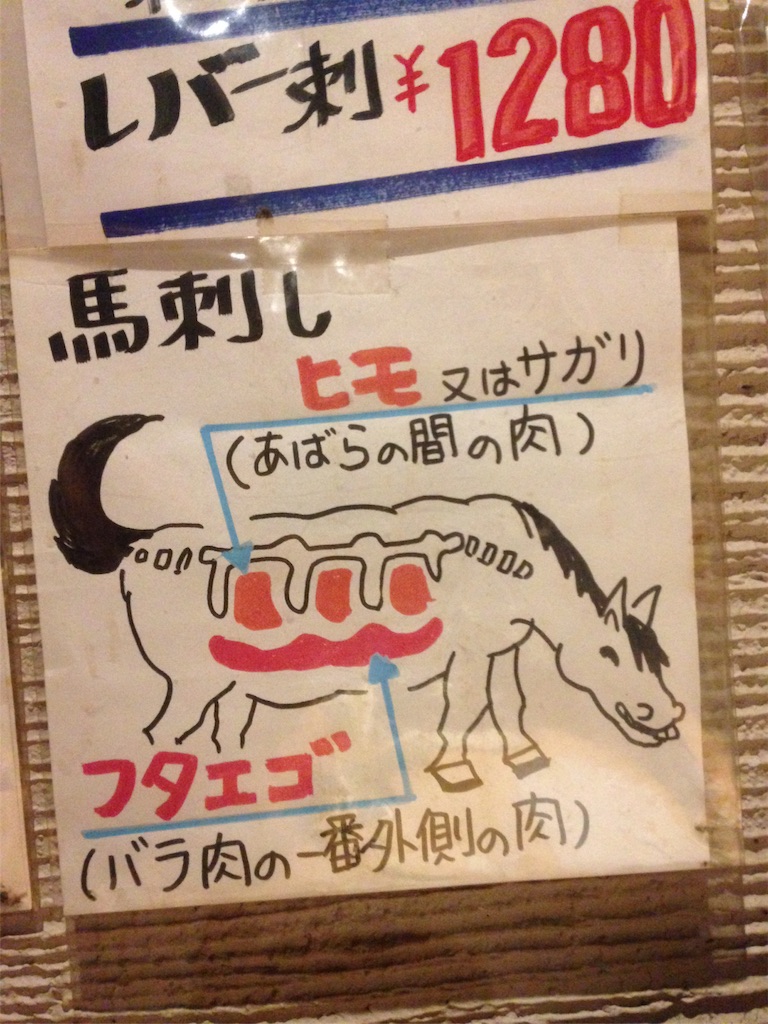 レバー刺 ¥1280
馬刺し
ヒモ 又はサガリ
(あばらの間の肉)
フタエゴ
(バラ肉の一番外側の肉)